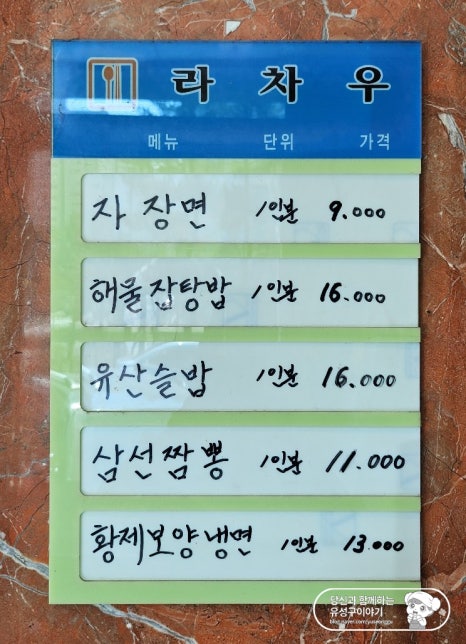 라 차 우
메뉴 단위 가격
자장면 1인분 9.000
해물잡탕밥 1인분 16.000
유산슬밥 1인분 16.000
삼선짬뽕 1인분 11.000
황제보양냉면 1인분 13.000
당신과 함께하는
유성구이야기